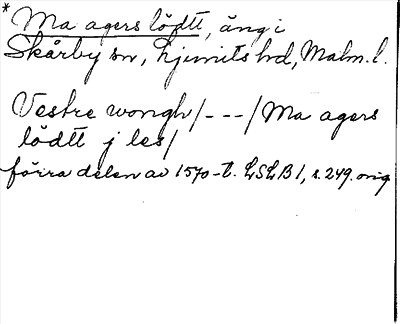 * Ma agers lödtt, äng i
Skårby sn, Ljunits hd, Malm. l.
Vestre wongh/---/Ma agers
lödtt j les/
förra delen av 1570-t. LSLB 1, s. 249. orig